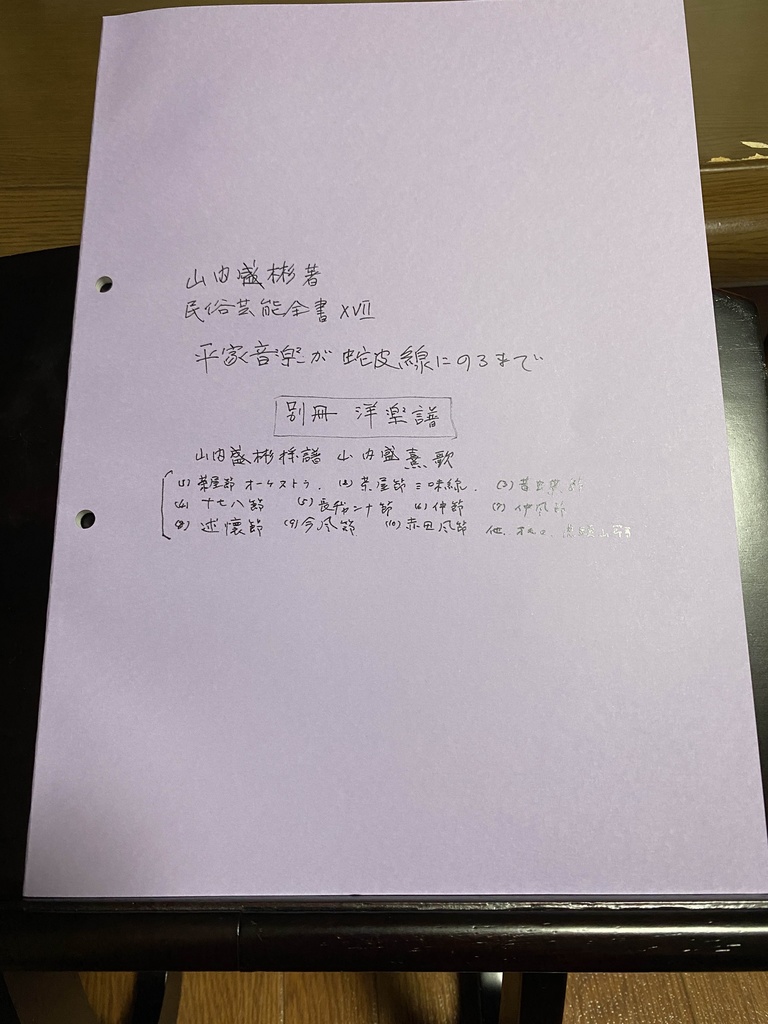 山内盛彬著
民俗芸能全書 XVII
平家音楽が蛇皮線にのるまで
別冊 洋楽譜
山内盛彬採譜 山内盛熹歌
(1) 茶屋節 オーケストラ. (2) 茶屋節 三味線. (3)
(4) 十七八節 (5) 長ヂャンナ節 (6) 仲節 (7) 仲風節
(8) 述懐節 (9) 今風節 (10) 赤田風節 他.